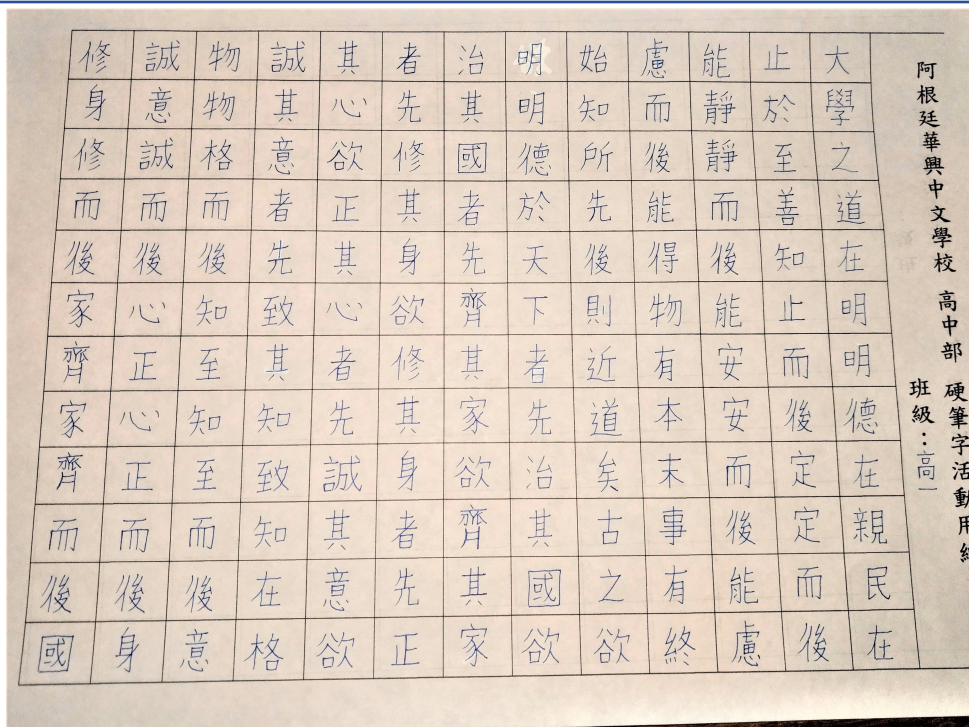 阿根廷華興中文學校 高中部 硬筆字活動用
班級：高一
大學之道在明明德在親民在
止於至善知止而後定定而後
能靜靜而後能安安而後能慮
慮而後能得物有本末事有終
始知所先後則近道矣古之欲
明明德於天下者先治其國欲
治其國者先齊其家欲齊其家
者先修其身欲修其身者先正
其心欲正其心者先誠其意欲
誠其意者先致其知致知在格
物物格而後知至知至而後意
誠意誠而後心正心正而後身
修身修而後家齊家齊而後國